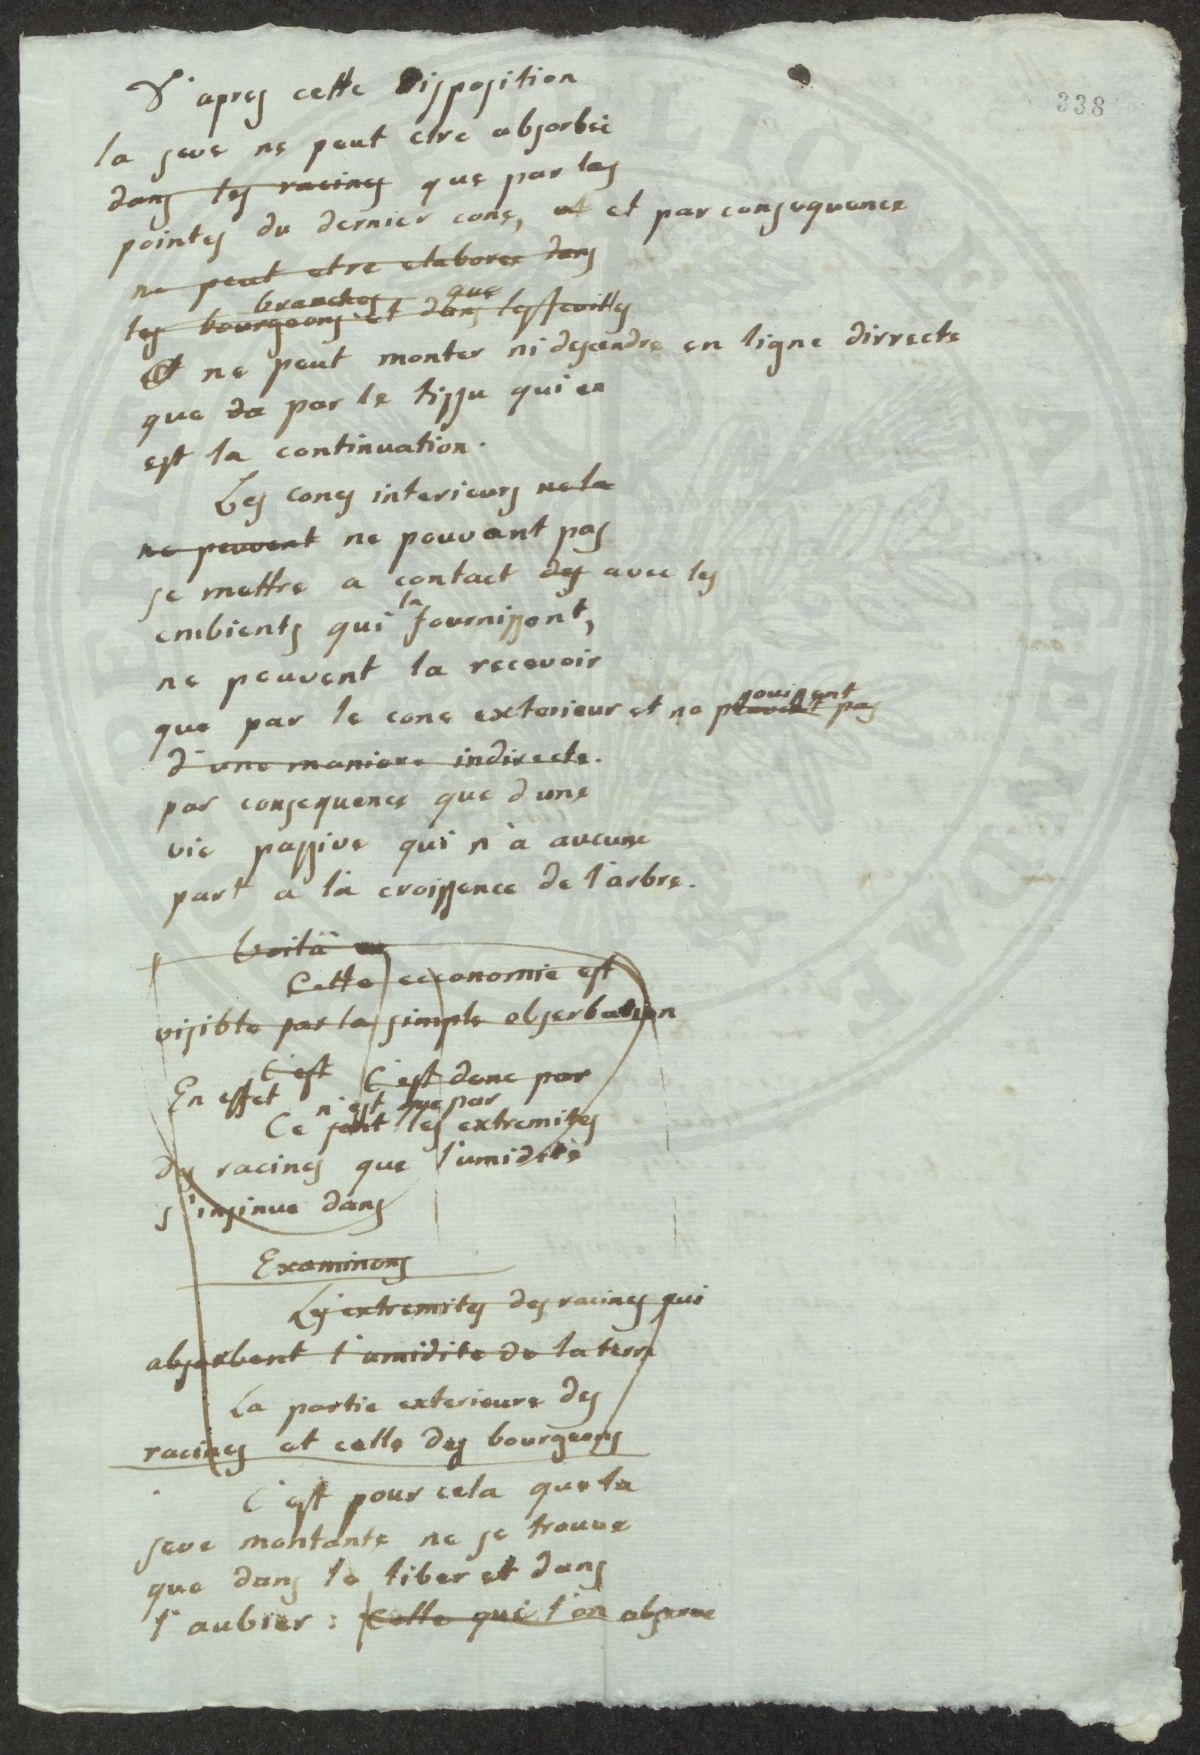 338
D'apres cette Disposition
la seve ne peut etre absorbéi
dans les racines que par les
pointes du dernier cone, et et par consequence
ne peut etre elaboree dans
branches que
les bourgeons et dans les feuilles
Et ne peut monter ni desendre en ligne dirrecte
que da par le tissu qui en
est la continuation.
Les cones interieurs ne la
ne peuvent ne pouvant pas
se mettre a contact des avec les
la
embients qui fournissent,
ne peuvent la recevoir
jouissent
que par le cone exterieur et ne peuvent pas
d'une maniere indirecte.
par consequence que d'une
vie passive qui n'à aucune
part a là croissence de l'arbre.
Voilà
Cette economie est
visible par la simple obserbation
C'est C'est donc par
En effet n'est que par
Ce sont les extremites
des racines que l'umidité
s'insinue dans
Examinons
Les extremites des racines qui
absorbent l'umidite de la terre
La partie exterieure des
racines et celle des bourgeons
C'est pour cela que la
seve montante ne se trouve
que dans le liber et dans
l'aubier : Celle qui l'on observe